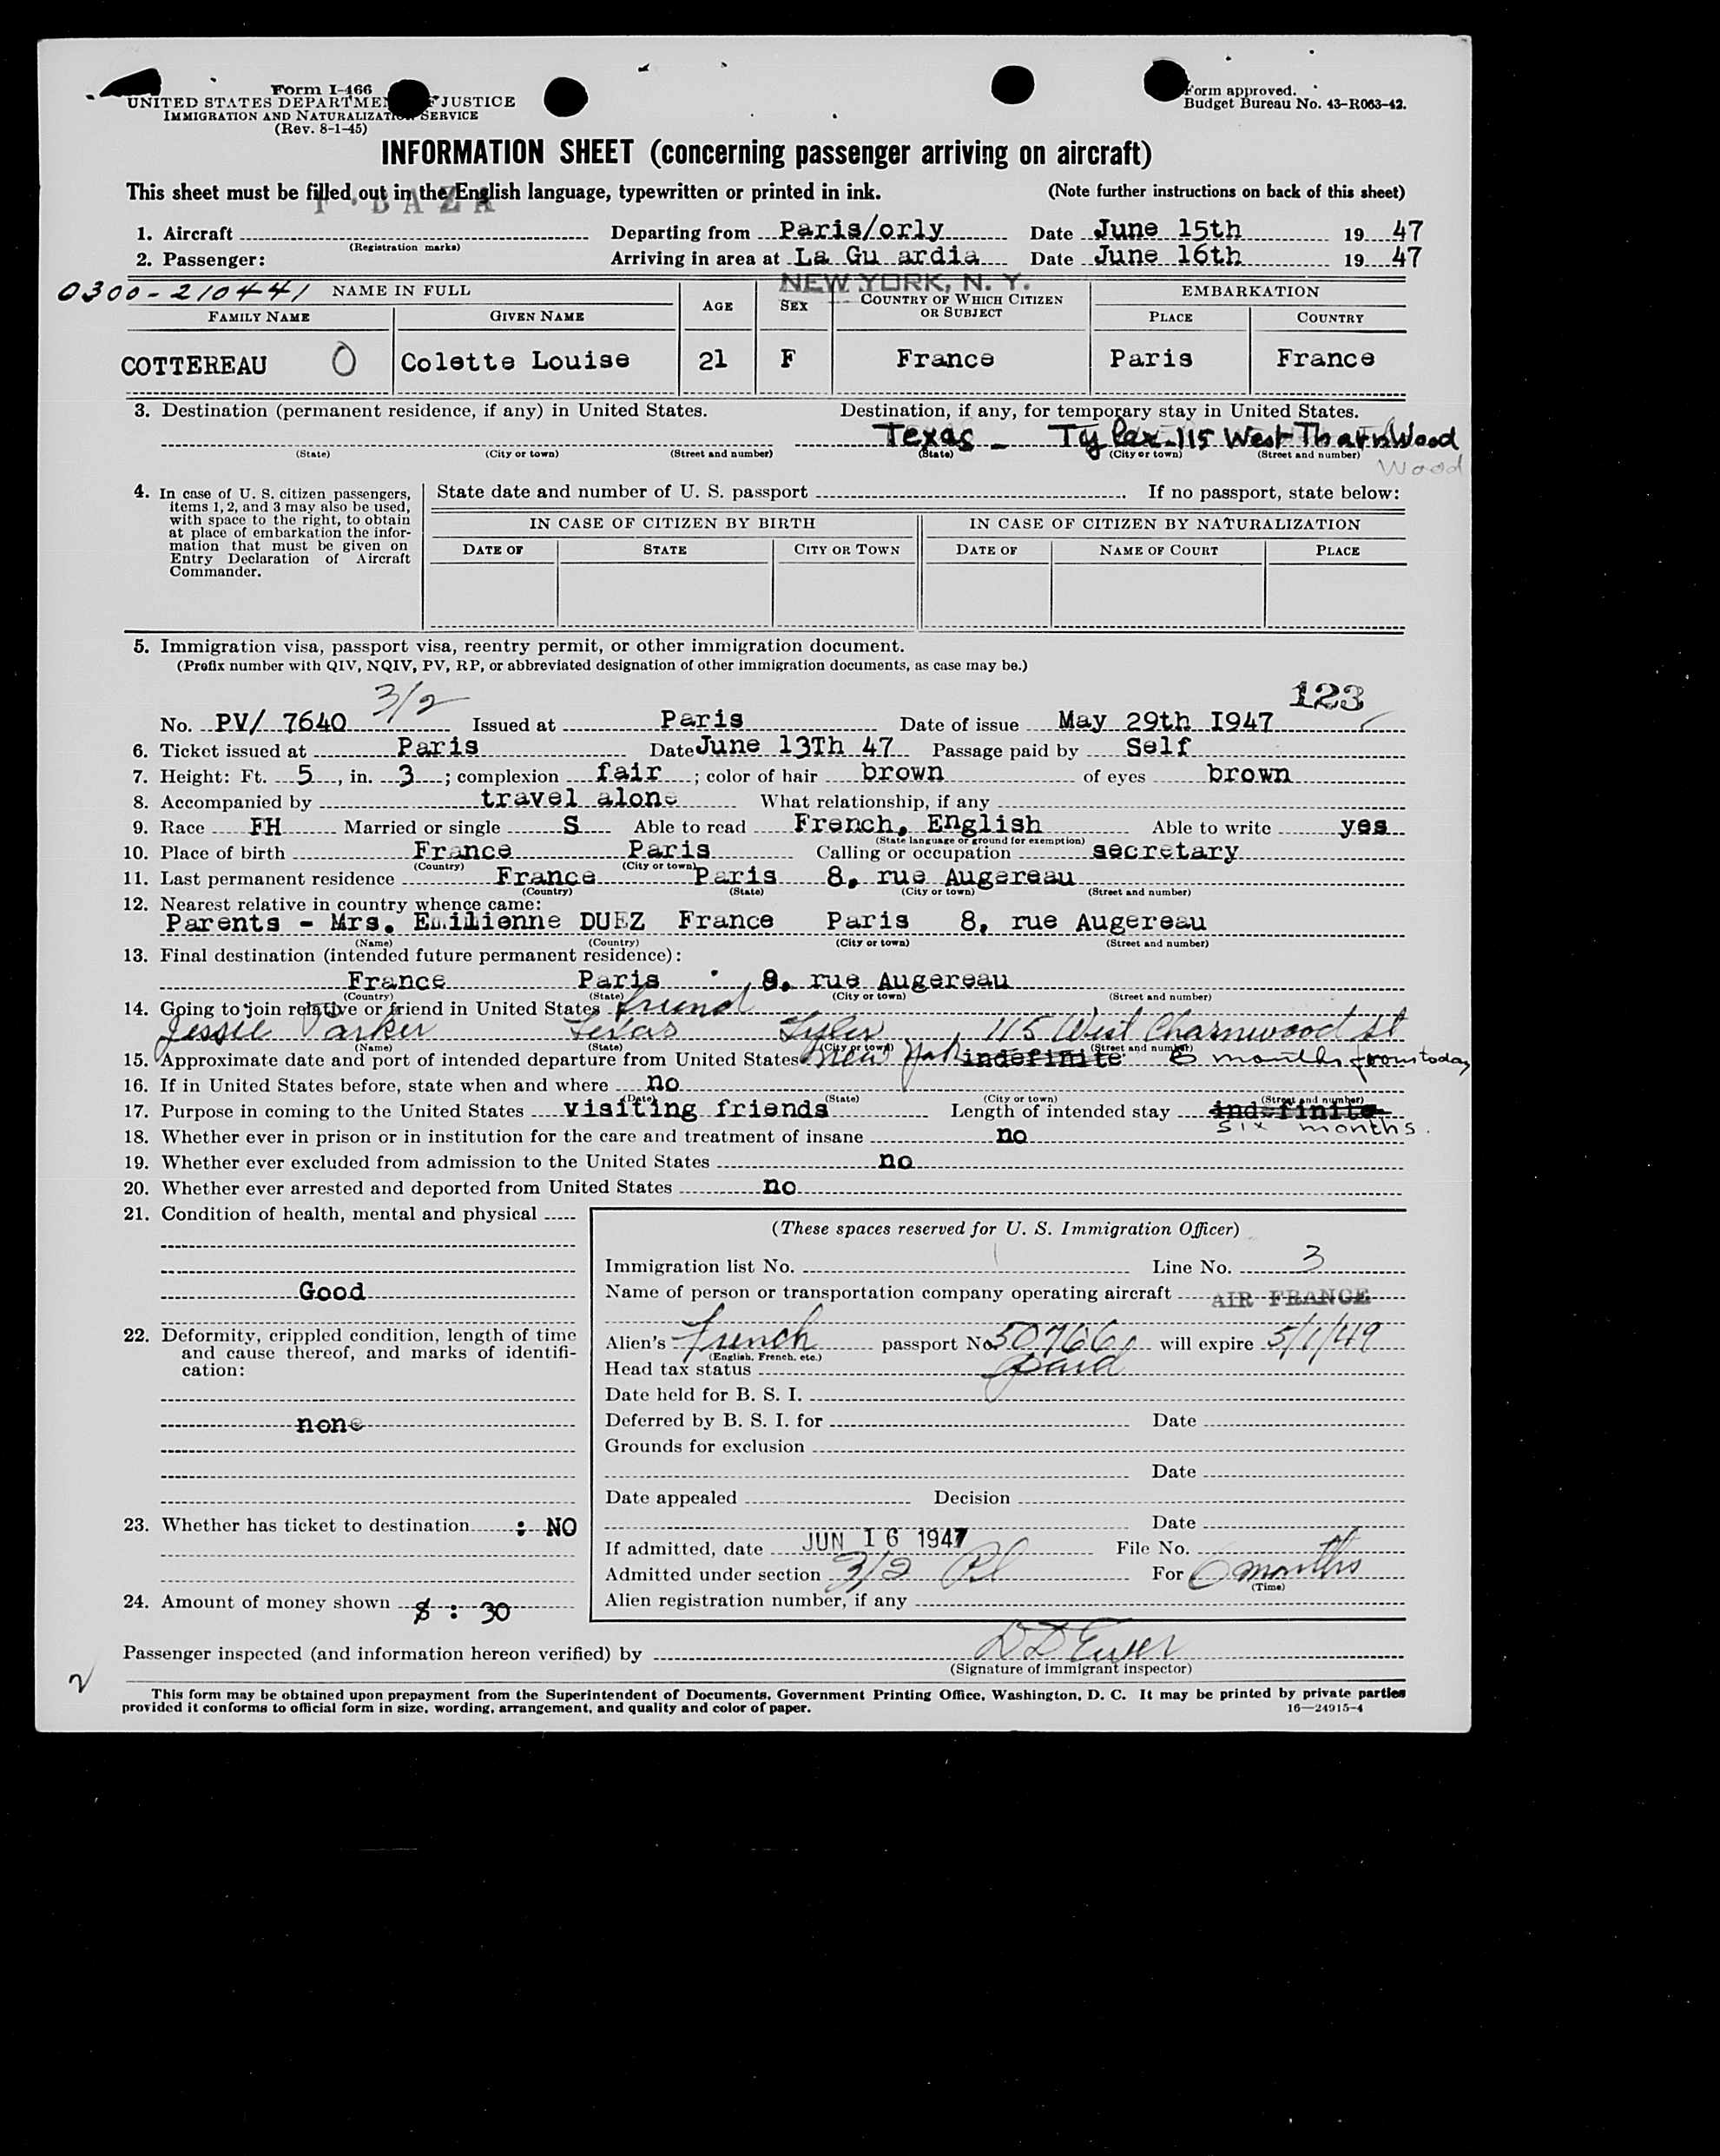 Form I-466
UNITED STATES DEPARTMENT OF JUSTICE
IMMIGRATION AND NATURALIZATION SERVICE
(Rev. 8-1-45)
Form approved.
Budget Bureau No. 43-R063-42.
INFORMATION SHEET (concerning passenger arriving on aircraft)
This sheet must be filled out in the English language, typewritten or printed in ink. (Note further instructions on back of this sheet)
F · BAZA
1. Aircraft Departing from Paris/orly Date June 15th 19 47
(Registration marks)
2. Passenger: Arriving in area at La Gu ardia Date June 16th 19 47
NEW YORK, N. Y.
0300-210441 NAME IN FULL AGE SEX COUNTRY OF WHICH CITIZEN OR SUBJECT EMBARKATION
FAMILY NAME GIVEN NAME PLACE COUNTRY
COTTEREAU O Colette Louise 21 F France Paris France
3. Destination (permanent residence, if any) in United States. Destination, if any, for temporary stay in United States.
Texas - Tyler 115 West Tharnwood
(State) (City or town) (Street and number) (State) (City or town) (Street and number)
Wood
4. In case of U. S. citizen passengers, items 1, 2, and 3 may also be used, with space to the right, to obtain at place of embarkation the information that must be given on Entry Declaration of Aircraft Commander.
State date and number of U. S. passport If no passport, state below:
IN CASE OF CITIZEN BY BIRTH IN CASE OF CITIZEN BY NATURALIZATION
DATE OF STATE CITY OR TOWN DATE OF NAME OF COURT PLACE
5. Immigration visa, passport visa, reentry permit, or other immigration document.
(Prefix number with QIV, NQIV, PV, RP, or abbreviated designation of other immigration documents, as case may be.)
3/2 123
No. PV/ 7640 Issued at Paris Date of issue May 29th I947
6. Ticket issued at Paris Date June 13Th 47 Passage paid by Self
7. Height: Ft. 5, in. 3; complexion fair; color of hair brown of eyes brown
8. Accompanied by travel alone What relationship, if any
9. Race FH Married or single S Able to read French, English Able to write yes
(State language or ground for exemption)
10. Place of birth France Paris Calling or occupation secretary
(Country) (City or town)
11. Last permanent residence France Paris 8, rue Augereau
(Country) (State) (City or town) (Street and number)
12. Nearest relative in country whence came:
Parents - Mrs. Emilienne DUEZ France Paris 8, rue Augereau
(Name) (Country) (City or town) (Street and number)
13. Final destination (intended future permanent residence):
France Paris 8, rue Augereau
(Country) (State) (City or town) (Street and number)
14. Going to join relative or friend in United States friend
Jessie Parker Texas Tyler, 115 West Charnwood St
(Name) (State) (City or town) (Street and number)
15. Approximate date and port of intended departure from United States New York indefinite 6 months from today
16. If in United States before, state when and where no
(Date) (State) (City or town) (Street and number)
17. Purpose in coming to the United States visiting friends Length of intended stay indefinite
six months.
18. Whether ever in prison or in institution for the care and treatment of insane no
19. Whether ever excluded from admission to the United States no
20. Whether ever arrested and deported from United States no
21. Condition of health, mental and physical
Good
22. Deformity, crippled condition, length of time and cause thereof, and marks of identification:
none
23. Whether has ticket to destination : NO
24. Amount of money shown $ : 30
(These spaces reserved for U. S. Immigration Officer)
Immigration list No. Line No. 3
Name of person or transportation company operating aircraft AIR FRANCE
Alien's French passport No. 50766 will expire 5/1/49
(English, French, etc.)
Head tax status paid
Date held for B. S. I.
Deferred by B. S. I. for Date
Grounds for exclusion
Date
Date appealed Decision
Date
If admitted, date JUN 16 1947 File No.
Admitted under section 3/2 For 6 months
(Time)
Alien registration number, if any
Passenger inspected (and information hereon verified) by
(Signature of immigrant inspector)
2
This form may be obtained upon prepayment from the Superintendent of Documents, Government Printing Office, Washington, D. C. It may be printed by private parties
provided it conforms to official form in size, wording, arrangement, and quality and color of paper. 16—24915-4